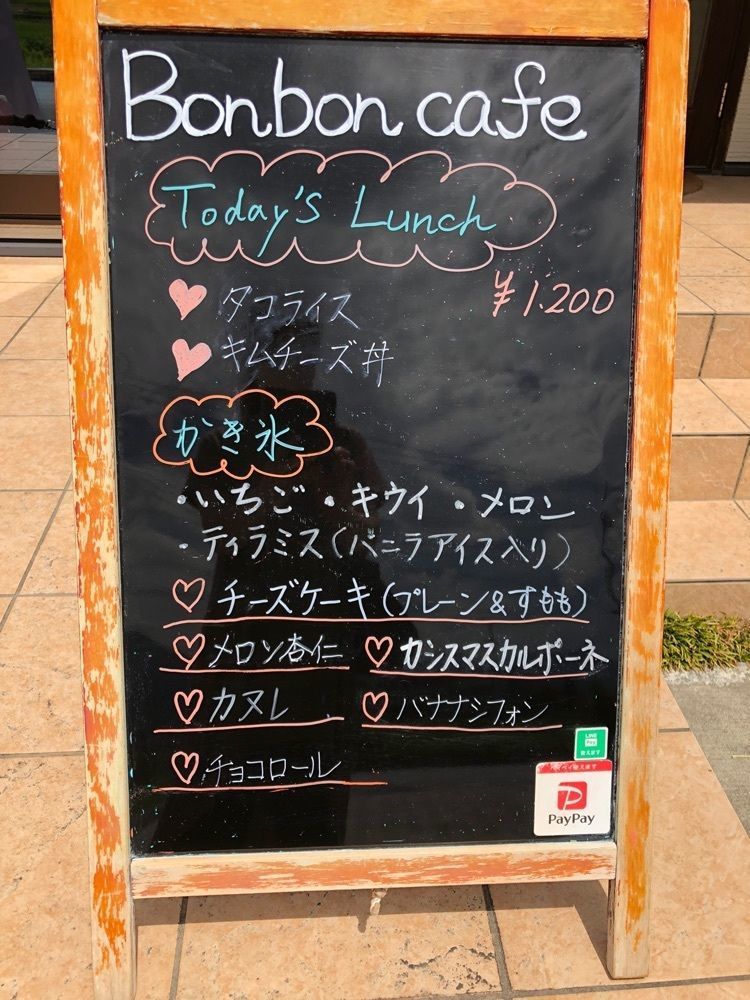 Bonbon cafe
Today's Lunch
タコライス ¥1.200
キムチーズ丼
かき氷
・いちご ・キウイ ・メロン
・ティラミス(バニラアイス入り)
チーズケーキ(プレーン&すもも)
メロン杏仁 カシスマスカルポーネ
カヌレ バナナシフォン
チョコロール
LINE Pay
使えます
ペイ使えます
PayPay